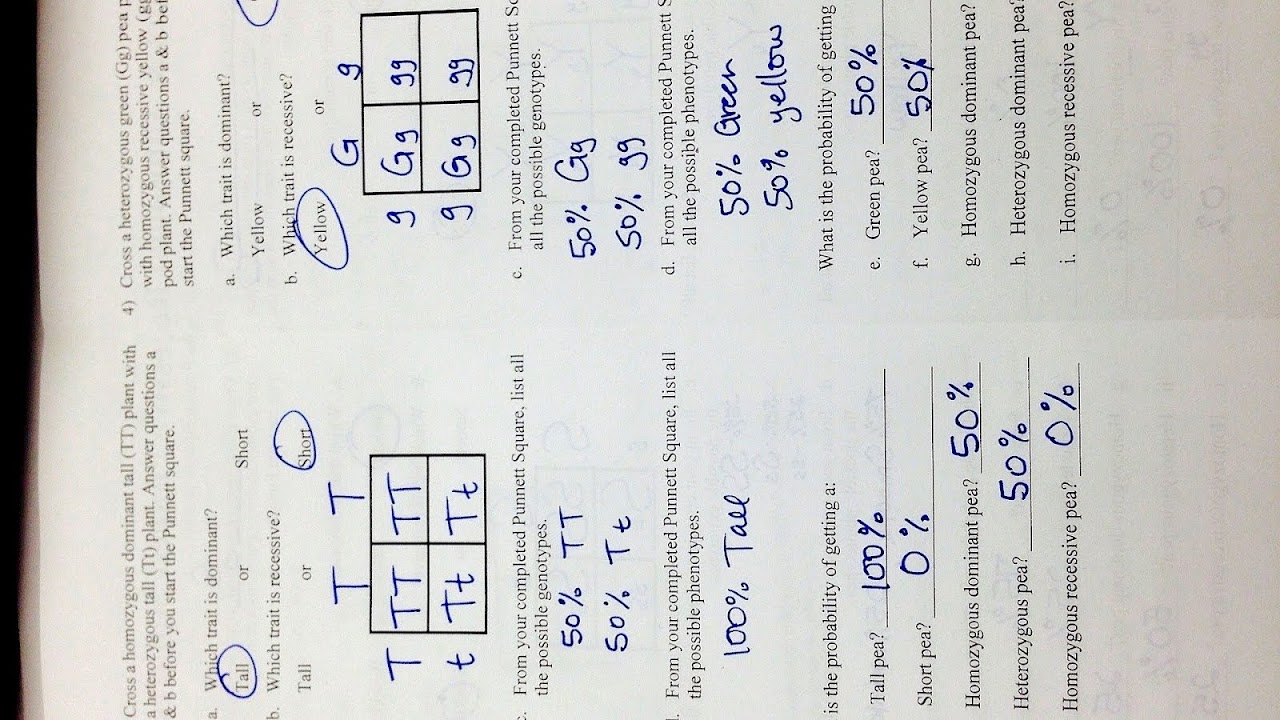 Cross a homozygous dominant tall (TT) plant with
a heterozygous tall (Tt) plant. Answer questions a
& b before you start the Punnett square.
a. Which trait is dominant?
Tall or Short
b. Which trait is recessive?
Tall or Short
T T
T TT TT
t Tt Tt
c. From your completed Punnett Square, list all
the possible genotypes.
50% TT
50% Tt
From your completed Punnett Square, list all
the possible phenotypes.
100% Tall
is the probability of getting a:
Tall pea? 100%
Short pea? 0%
Homozygous dominant pea? 50%
Heterozygous pea? 50%
Homozygous recessive pea? 0%
4) Cross a heterozygous green (Gg) pea
with homozygous recessive yellow (gg
pod plant. Answer questions a & b bef
start the Punnett square.
a. Which trait is dominant?
Yellow or
b. Which trait is recessive?
Yellow or
G g
g Gg gg
g Gg gg
c. From your completed Punnett
all the possible genotypes.
50% Gg
50% gg
d. From your completed Punnett S
all the possible phenotypes.
50% Green
50% yellow
What is the probability of getting
e. Green pea? 50%
f. Yellow pea? 50%
g. Homozygous dominant pea?
h. Heterozygous dominant pea?
i. Homozygous recessive pea?